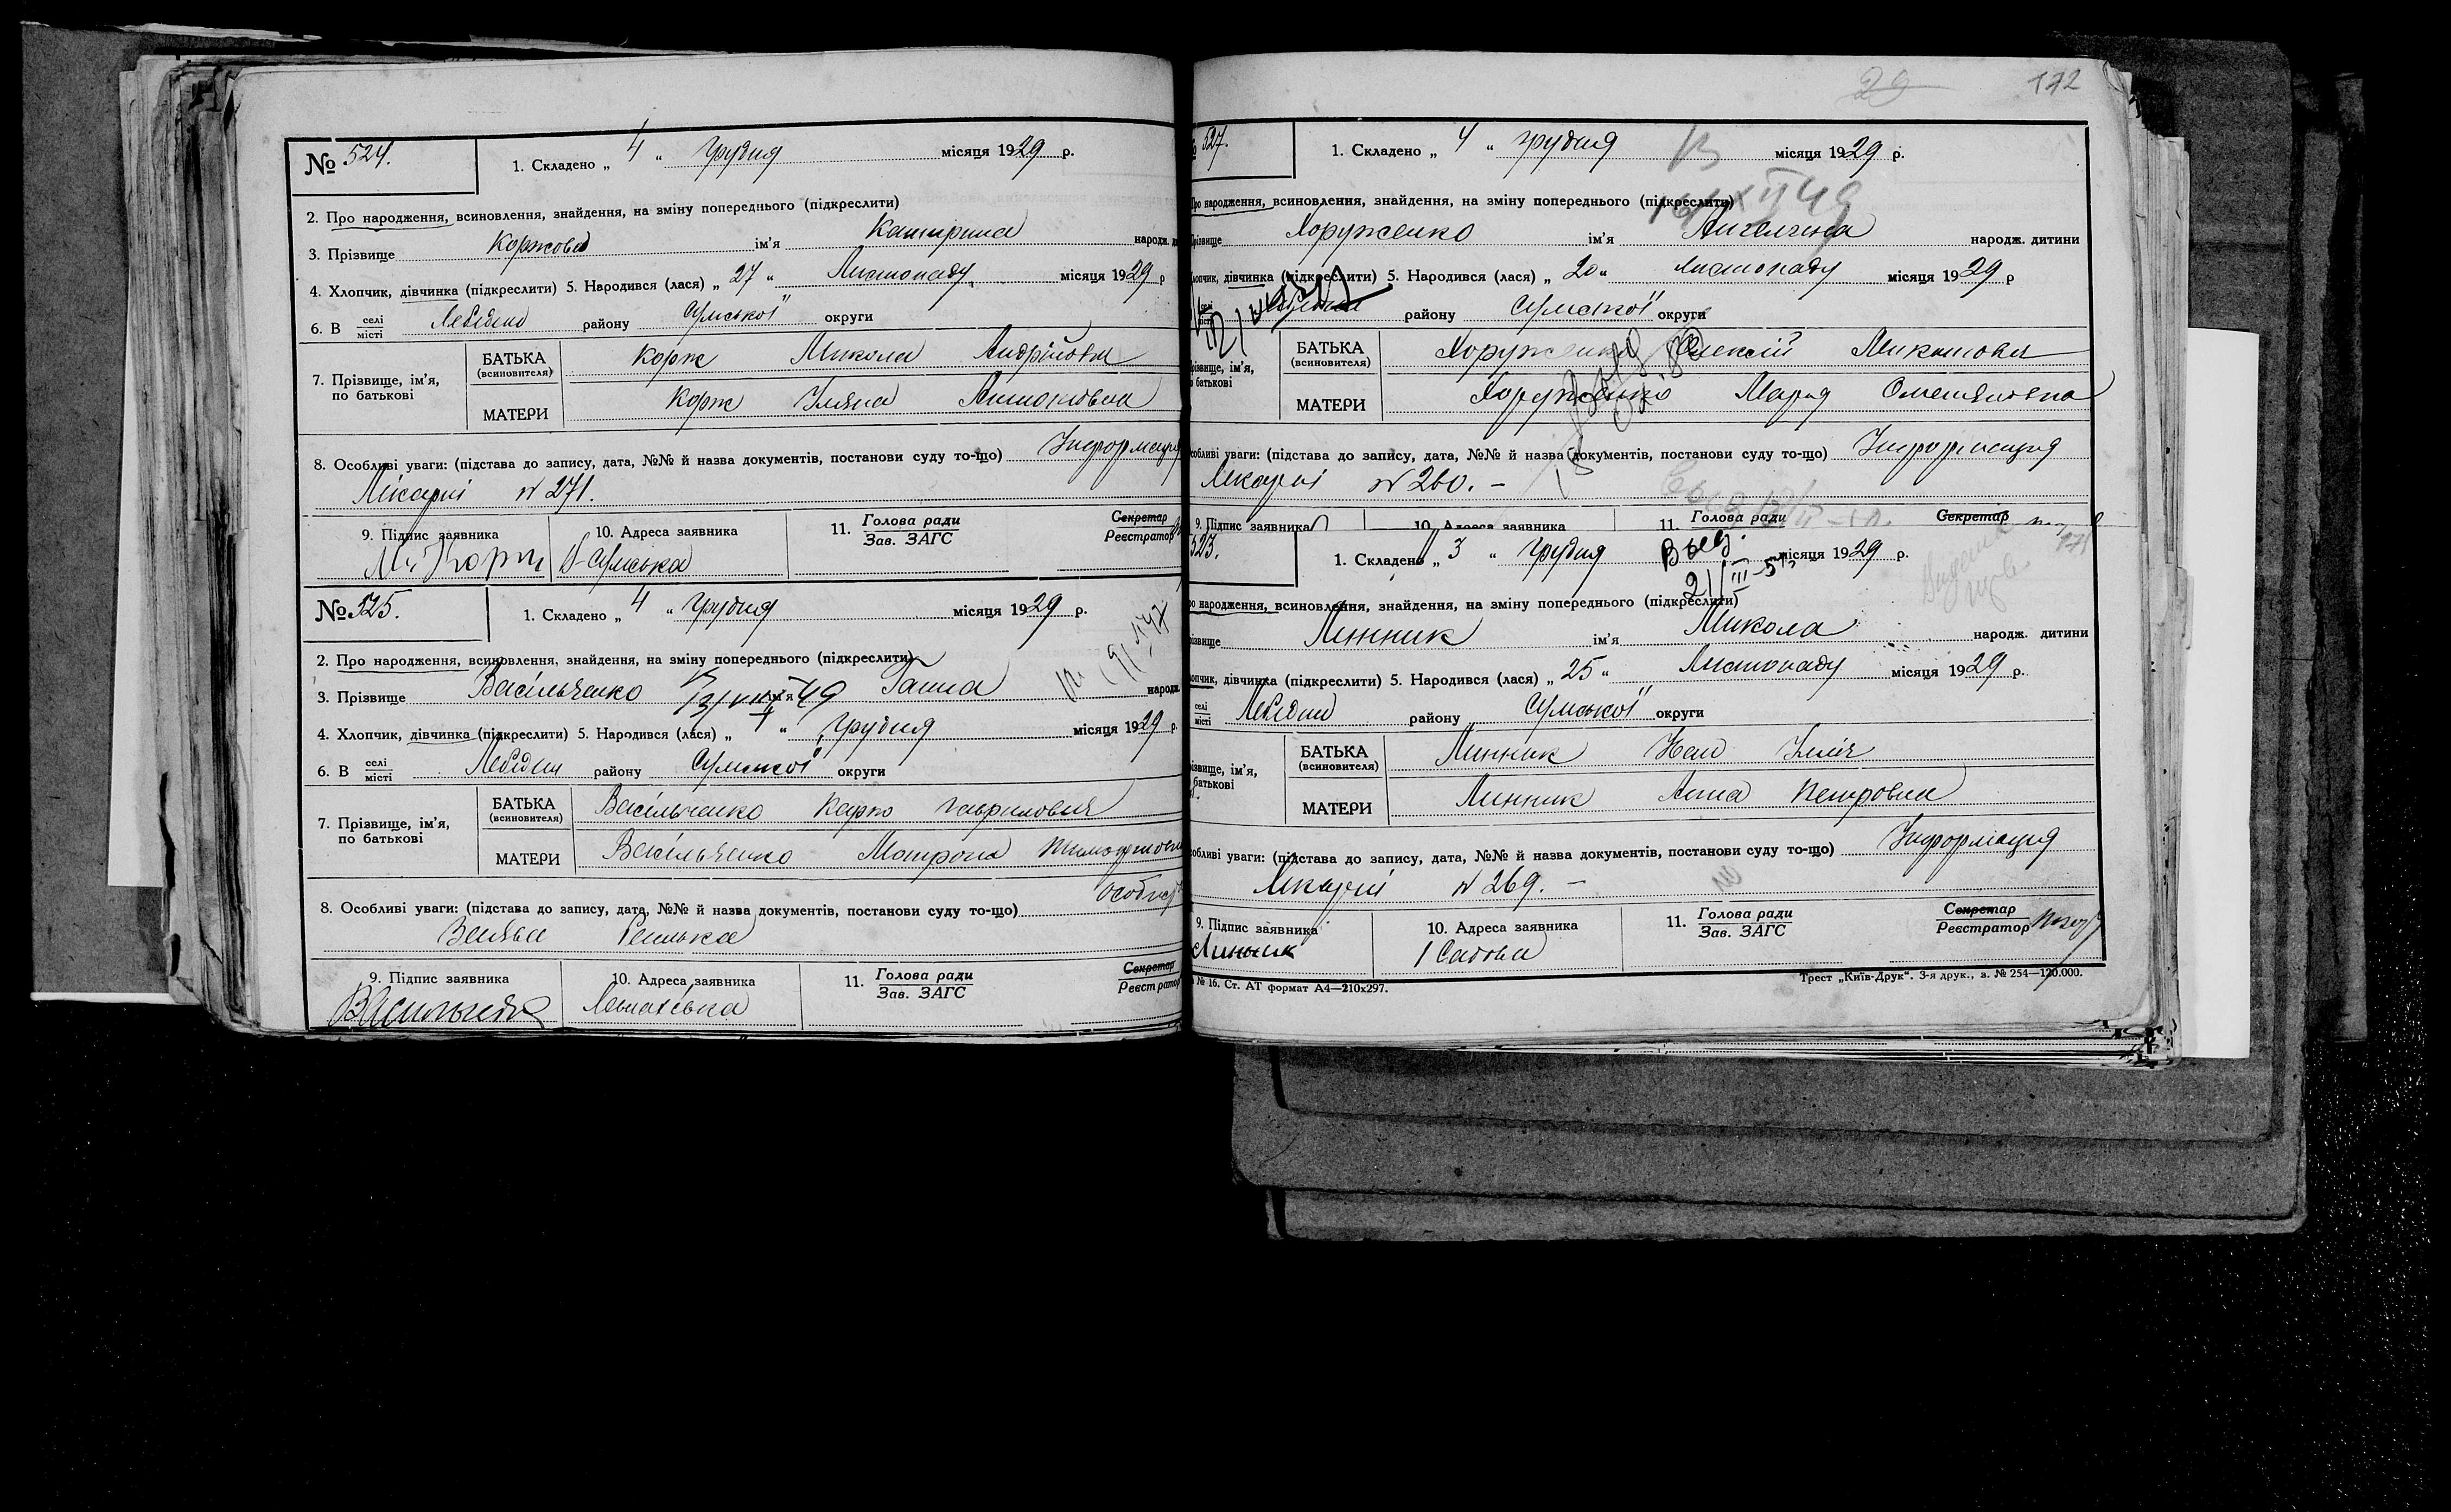 № 524. 1. Складено „ 4 “ Грудня місяця 1929 р.
2. Про народження, всиновлення, знайдення, на зміну попереднього (підкреслити)
3. Прізвище Коржова ім'я Катирина народж.
4. Хлопчик, дівчинка (підкреслити) 5. Народився (лася) „ 27 “ Листопаду місяця 1929 р
6. В селі місті Лебедино району Сумської округи
7. Прізвище, ім'я, по батькові
БАТЬКА (всиновителя) Корж Микола Андрійович
МАТЕРИ Корж Уляна
8. Особливі уваги: (підстава до запису, дата, №№ й назва документів, постанови суду то-що) Інформація
Лікарні № 271.
9. Підпис заявника 10. Адреса заявника 11. Голова ради Зав. ЗАГС Секретар Реєстратор
М. Корж Сумська
№ 525. 1. Складено „ 4 “ Грудня місяця 1929 р.
2. Про народження, всиновлення, знайдення, на зміну попереднього (підкреслити)
3. Прізвище Васільченко ім'я Ганна народж.
4. Хлопчик, дівчинка (підкреслити) 5. Народився (лася) „ “ Грудня місяця 1929 р.
6. В селі місті Лебедин району Сумської округи
7. Прізвище, ім'я, по батькові
БАТЬКА (всиновителя) Васільченко Карпо Гаврилович
МАТЕРИ Васільченко Мотрона
8. Особливі уваги: (підстава до запису, дата, №№ й назва документів, постанови суду то-що)
Заява
9. Підпис заявника 10. Адреса заявника 11. Голова ради Зав. ЗАГС Секретар Реєстратор
29 172
527. 1. Складено „ 4 “ Грудня місяця 1929 р.
Про народження, всиновлення, знайдення, на зміну попереднього (підкреслити)
Прізвище Хоруженко ім'я Ангелина народж. дитини
дівчинка (підкреслити) 5. Народився (лася) „ 20 “ Листопаду місяця 1929 р
селі місті району Сумської округи
БАТЬКА (всиновителя) Хоруженко Олексій Микитович
Прізвище, ім'я, по батькові
МАТЕРИ Хоруженко Мария Омеляновна
Особливі уваги: (підстава до запису, дата, №№ й назва документів, постанови суду то-що) Інформация
Лікарні № 260. –
9. Підпис заявника 10. Адреса заявника 11. Голова ради Секретар
523. 1. Складено „ 3 “ Грудня місяця 1929 р.
Выд. 21/III-5
про народження, всиновлення, знайдення, на зміну попереднього (підкреслити)
Прізвище Линник ім'я Микола народж. дитини
Хлопчик, дівчинка (підкреслити) 5. Народився (лася) „ 25 “ Листопаду місяця 1929 р.
селі місті Лебедин району Сумської округи
БАТЬКА (всиновителя) Линник Іван Ілліч
Прізвище, ім'я, по батькові
МАТЕРИ Линник Анна Петровна
Особливі уваги: (підстава до запису, дата, №№ й назва документів, постанови суду то-що) Інформация
Лікарні № 269. –
9. Підпис заявника 10. Адреса заявника 11. Голова ради Зав. ЗАГС Секретар Реєстратор
Линник 1 Садова
№ 16. Ст. АТ формат А4—210х297. Трест „Київ-Друк“. 3-я друк., з. № 254—120.000.